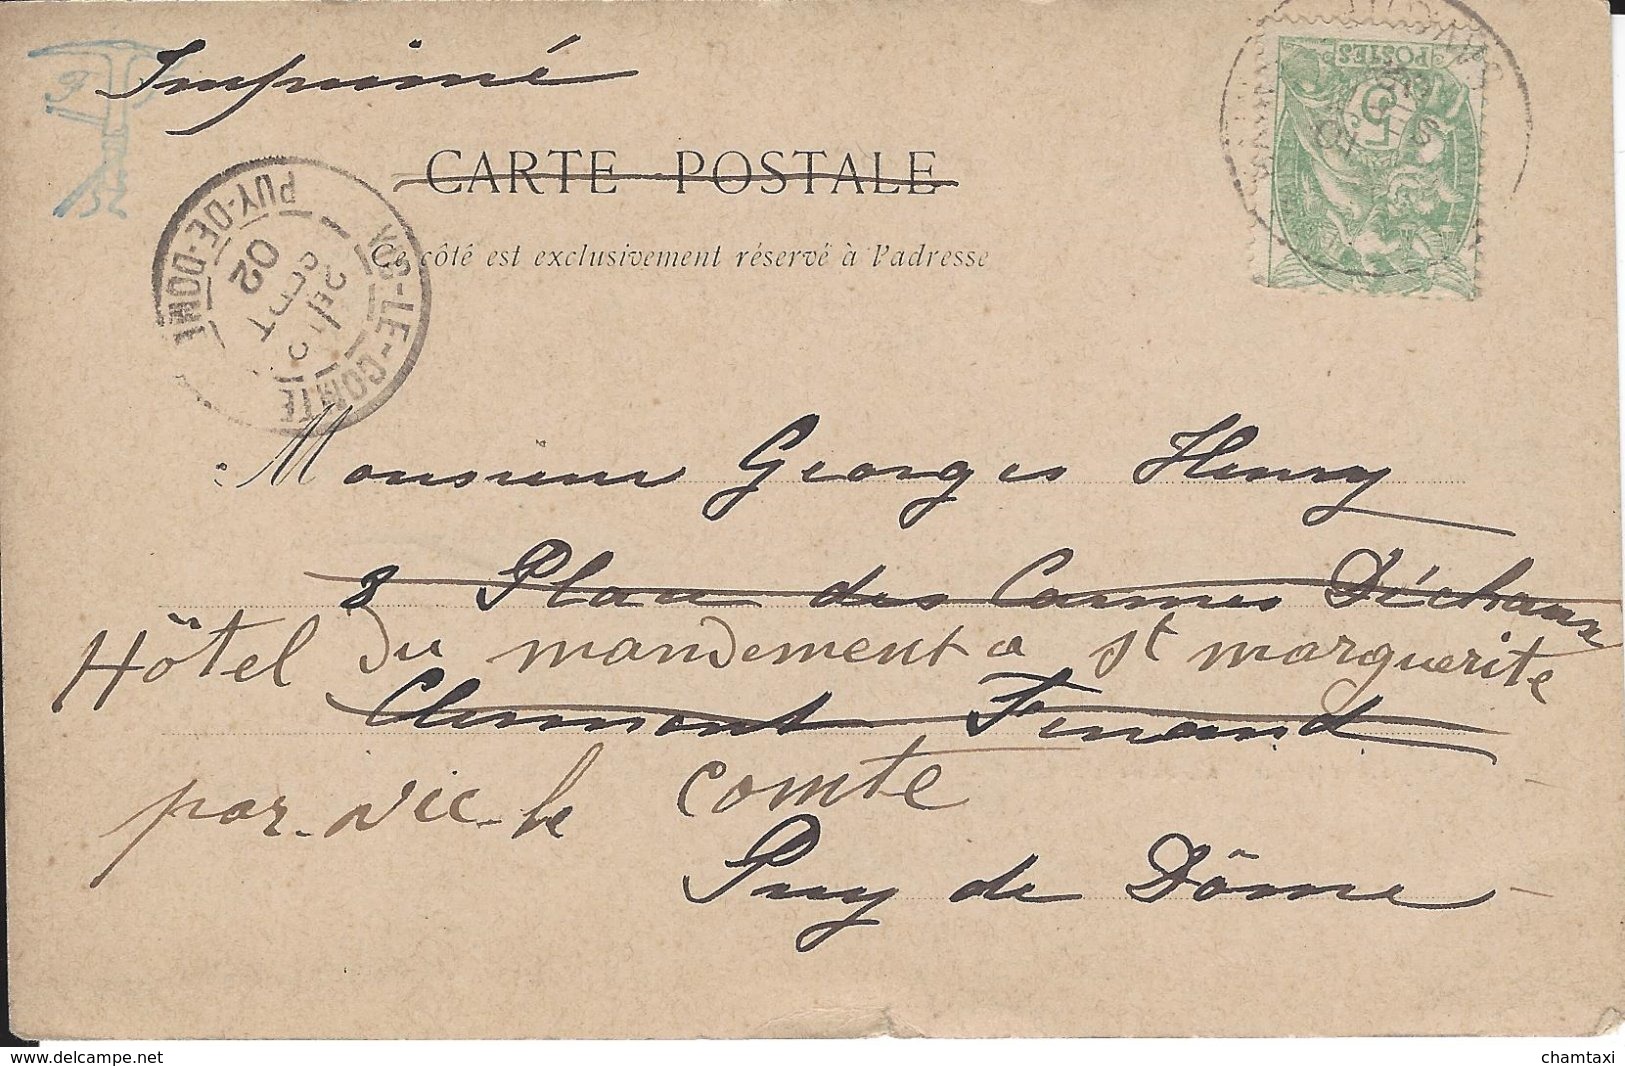 Imprimé
CARTE POSTALE
Ce côté est exclusivement réservé à l'adresse
POSTES
5
VIC-LE-COMTE
PUY-DE-DOME
SEPT
02
Monsieur Georges Henry
8 Place des Carmes Déchaux
Hôtel du mandement a st marguerite
Clermont Ferrand
par vic-le comte
Puy de Dôme
delcampe.net
chamtaxi